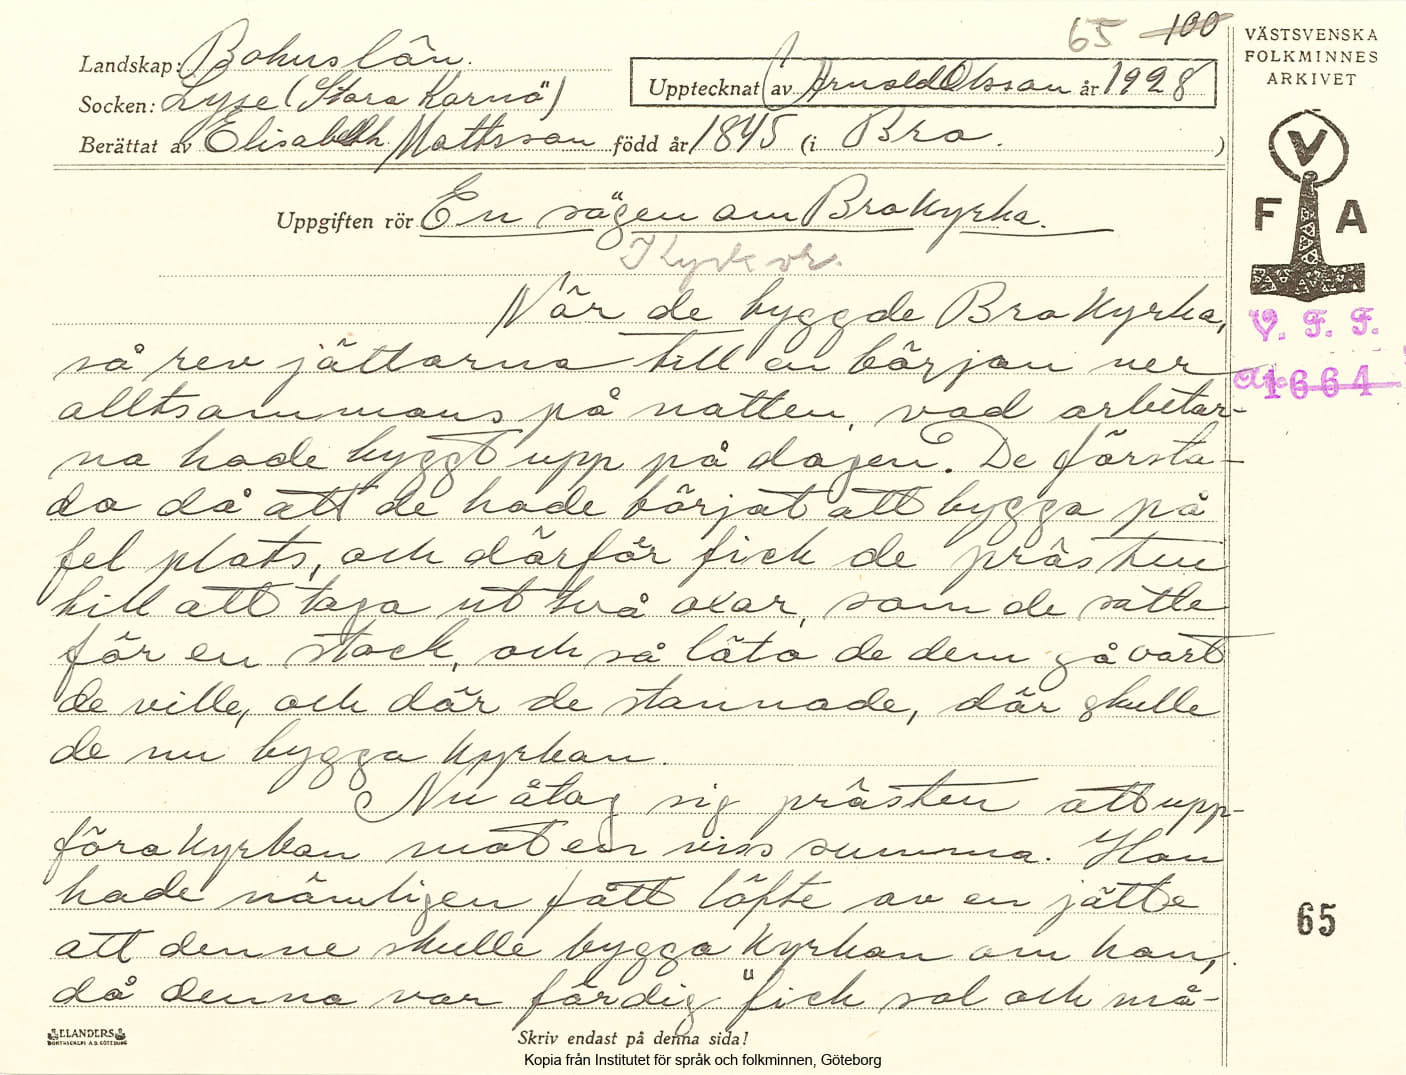 65 100
VÄSTSVENSKA
FOLKMINNES
ARKIVET
Landskap: Bohuslän.
Socken: Lyse (Stora Kornö)
Upptecknat av Arnold Olsson år 1928
Berättat av Elisabeth Mattsson född år 1845 (i Bro. )
V
F A
Uppgiften rör En sägen om Bro Kyrka.
Kyrkor.
När de byggde Bro Kyrka,
så rev jättarna till en början ner
alltsammans på natten, vad arbetar-
na hade byggt upp på dagen. De försto-
do då att de hade börjat att bygga på
fel plats, och därför fick de prästen
till att taga ut två oxar, som de satte
för en stock, och så läto de dem gå vart
de ville, och där de stannade, där skulle
de nu bygga kyrkan.
Nu åtog sig prästen att upp-
föra kyrkan mot en viss summa. Han
hade nämligen fått löfte av en jätte
att denne skulle bygga kyrkan om han,
då denna var färdig "fick sol och må-
V. F. F.
1664
65
ELANDERS
BOKTRYCKERI A.B. GÖTEBORG
Skriv endast på denna sida!
Kopia från Institutet för språk och folkminnen, Göteborg